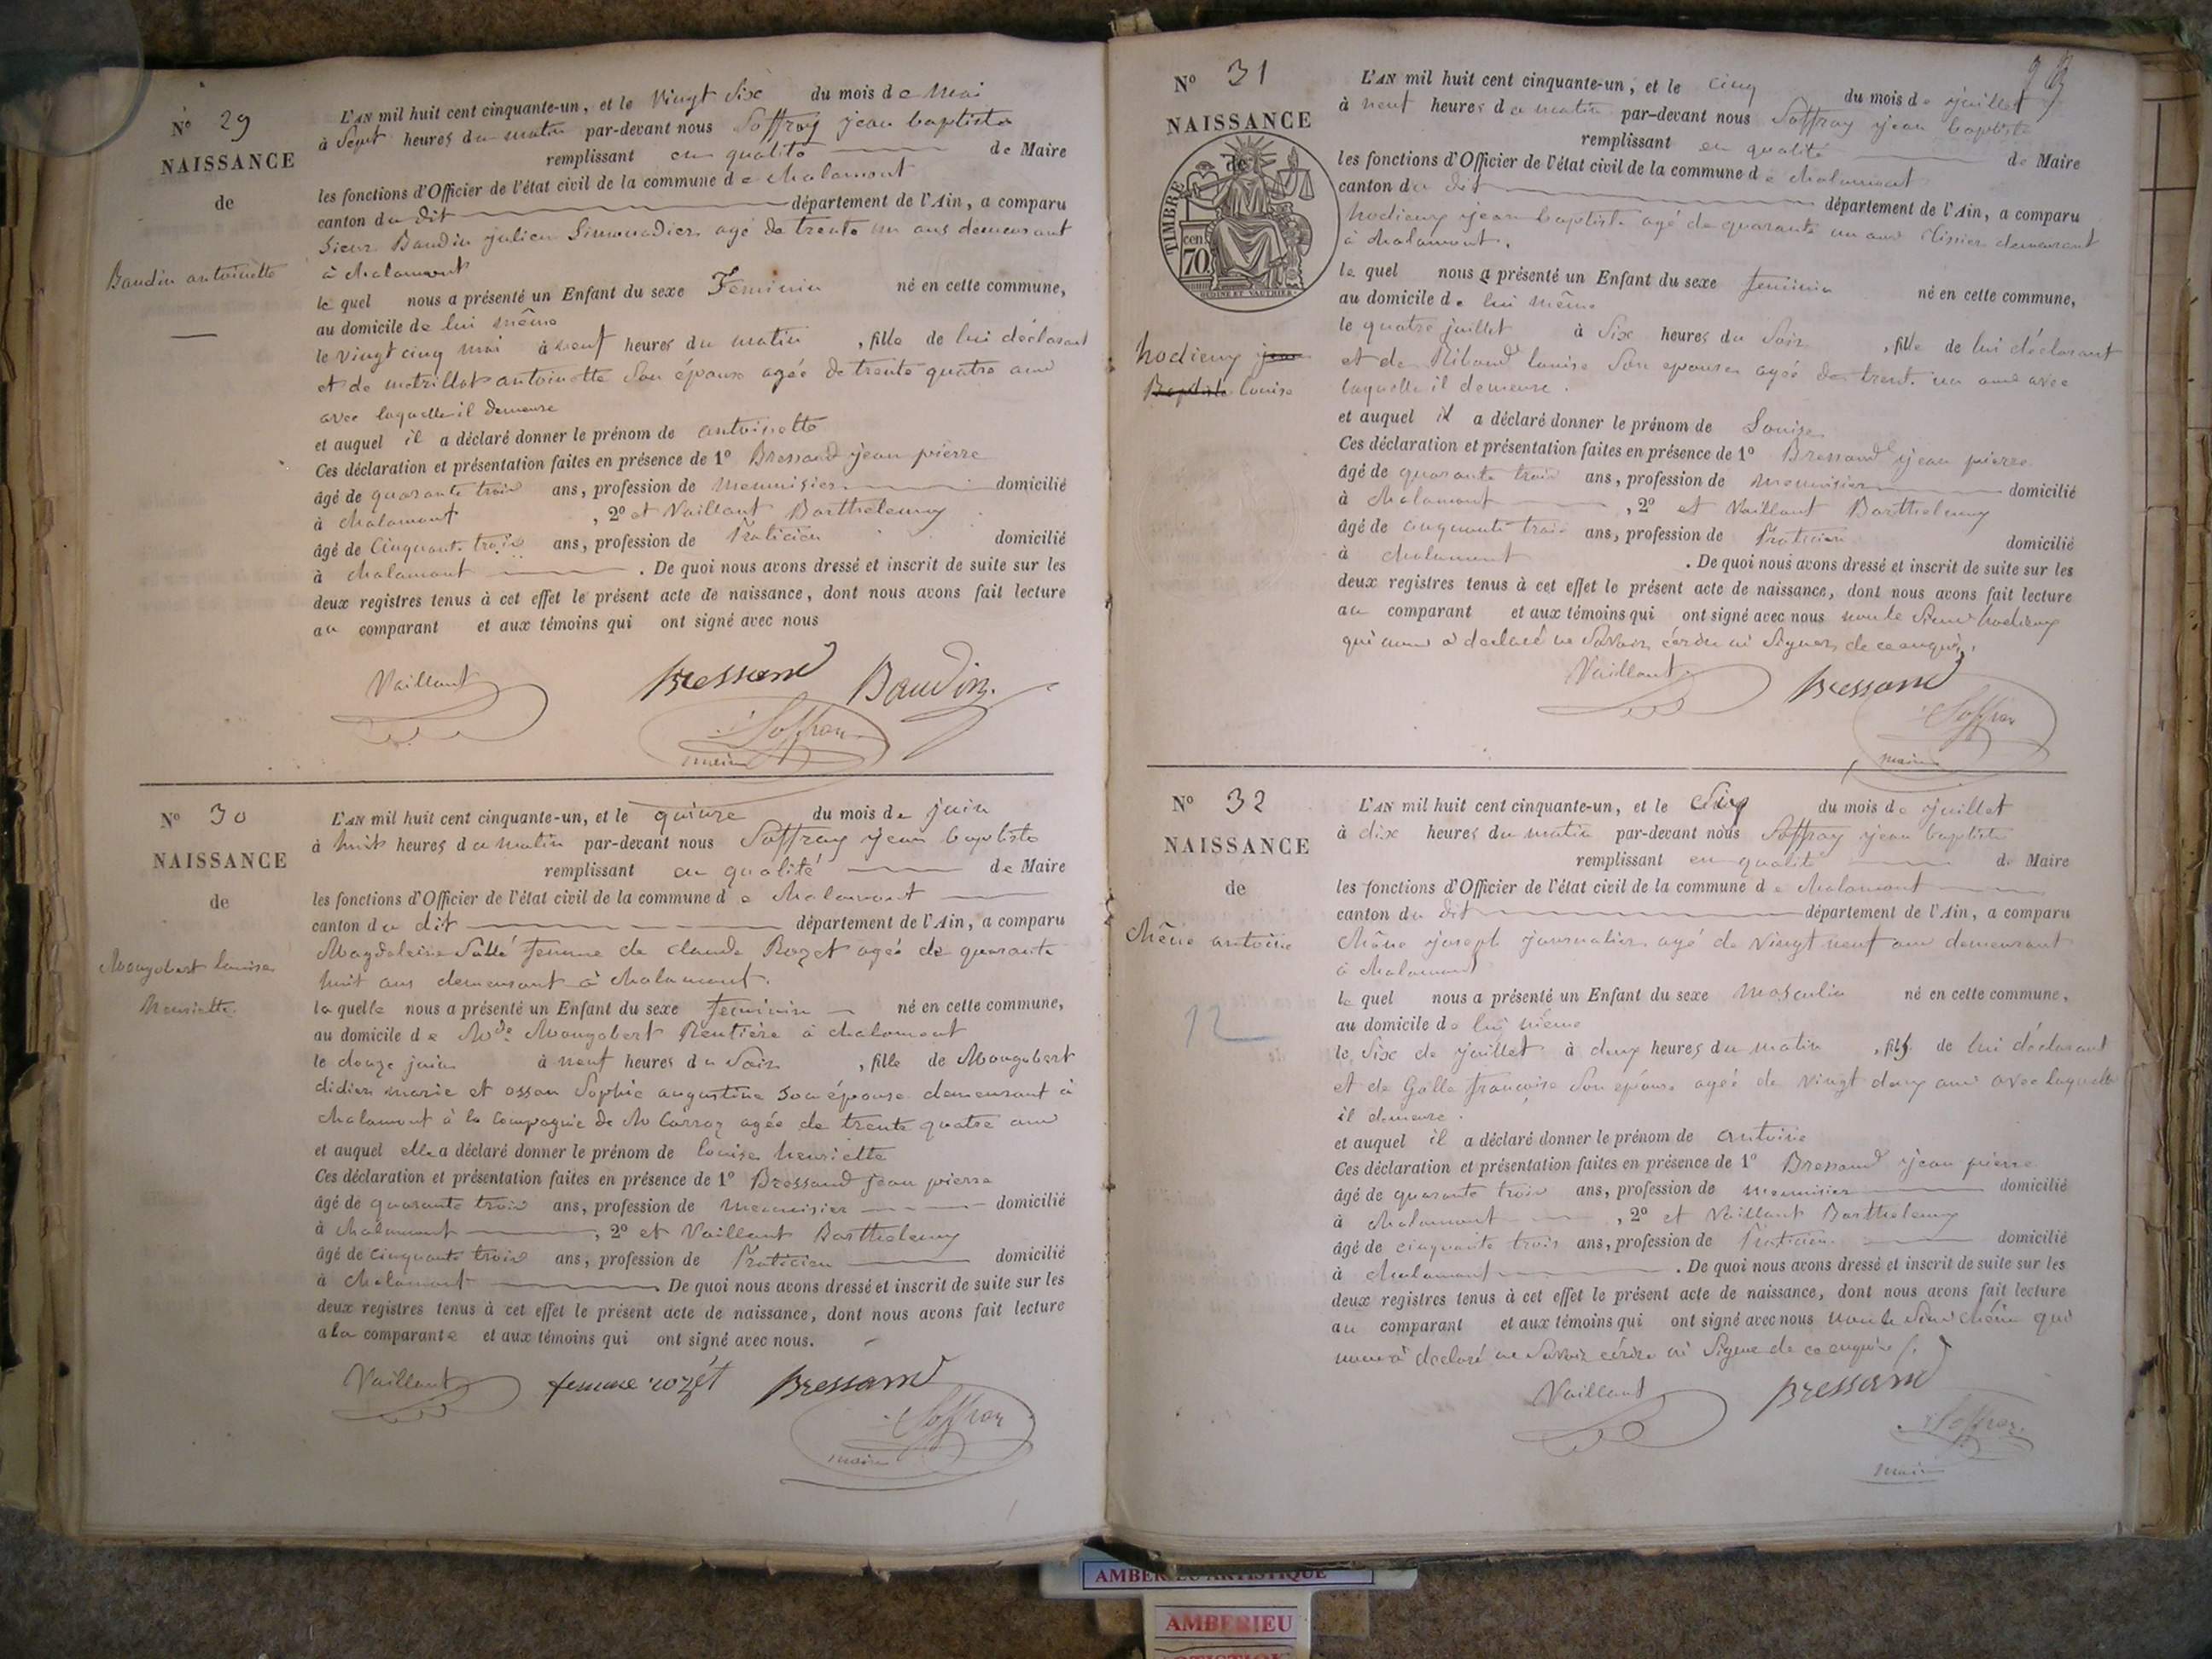 N° 29
NAISSANCE
de
Baudin antoinette
L'AN mil huit cent cinquante-un, et le Vingt Six du mois de Mai
à Sept heures du matin par-devant nous Soffray jean baptiste
remplissant en qualité de Maire
les fonctions d'Officier de l'état civil de la commune de chalamont
canton du dit département de l'Ain, a comparu
Sieur Baudin julien agé de trente un ans demeurant
à chalamont
le quel nous a présenté un Enfant du sexe Feminin né en cette commune,
au domicile de lui même
le Vingt cinq mai à neuf heures du matin, fille de lui déclarant
et de antoinette Son épouse agée de trente quatre ans
avec laquelle il demeure
et auquel il a déclaré donner le prénom de antoinette
Ces déclaration et présentation faites en présence de 1° Bressand jean pierre
âgé de quarante trois ans, profession de menuisier domicilié
à chalamont, 2° et Vaillant Barthelemy
âgé de Cinquante trois ans, profession de Praticien domicilié
à chalamont. De quoi nous avons dressé et inscrit de suite sur les
deux registres tenus à cet effet le présent acte de naissance, dont nous avons fait lecture
au comparant et aux témoins qui ont signé avec nous
Vaillant Bressand Baudin
Soffray
maire
N° 30
NAISSANCE
de
Mougobert louise
henriette
L'AN mil huit cent cinquante-un, et le quinze du mois de juin
à huit heures du matin par-devant nous Soffray jean baptiste
remplissant en qualité de Maire
les fonctions d'Officier de l'état civil de la commune de chalamont
canton du dit département de l'Ain, a comparu
Magdeleine Sallé femme de claude Rozet agée de quarante
huit ans demeurant à chalamont.
la quelle nous a présenté un Enfant du sexe feminin né en cette commune,
au domicile de Mde Mougobert Rentière à chalamont
le douze juin à neuf heures du Soir, fille de Mougobert
didier marie et Sophie augustine Son épouse demeurant à
chalamont à la Compagnie de Mr Carroz agée de trente quatre ans
et auquel elle a déclaré donner le prénom de louise henriette
Ces déclaration et présentation faites en présence de 1° Bressand jean pierre
âgé de quarante trois ans, profession de menuisier domicilié
à chalamont, 2° et Vaillant Barthelemy
âgé de cinquante trois ans, profession de Praticien domicilié
à chalamont De quoi nous avons dressé et inscrit de suite sur les
deux registres tenus à cet effet le présent acte de naissance, dont nous avons fait lecture
a la comparante et aux témoins qui ont signé avec nous.
Vaillant femme rozét Bressand
Soffray
maire
N° 31
NAISSANCE
de
TIMBRE
cen.
70
OUDINÉ ET VAUTHIER
hodieux jean
Baptiste louise
L'AN mil huit cent cinquante-un, et le cinq du mois de juillet
à neuf heures du matin par-devant nous Soffray jean baptiste
remplissant en qualité de Maire
les fonctions d'Officier de l'état civil de la commune de chalamont
canton du dit département de l'Ain, a comparu
hodieux jean baptiste agé de quarante un ans demeurant
à chalamont.
le quel nous a présenté un Enfant du sexe feminin né en cette commune,
au domicile de lui même
le quatre juillet à Six heures du Soir, fille de lui déclarant
et de louise Son epouse agée de trente un ans avec
laquelle il demeure.
et auquel il a déclaré donner le prénom de Louise
Ces déclaration et présentation faites en présence de 1° Bressand jean pierre
âgé de quarante trois ans, profession de menuisier domicilié
à chalamont, 2° et Vaillant Barthelemy
âgé de cinquante trois ans, profession de Praticien domicilié
à chalamont. De quoi nous avons dressé et inscrit de suite sur les
deux registres tenus à cet effet le présent acte de naissance, dont nous avons fait lecture
au comparant et aux témoins qui ont signé avec nous non le Sieur hodieux
qui nous a declaré ne Savoir écrire ni Signer de ce enquis.
Vaillant Bressand
Soffray
maire
N° 32
NAISSANCE
de
chêne antoine
12
L'AN mil huit cent cinquante-un, et le du mois de juillet
à dix heures du matin par-devant nous Soffray jean baptiste
remplissant en qualité de Maire
les fonctions d'Officier de l'état civil de la commune de chalamont
canton du dit département de l'Ain, a comparu
chêne joseph journalier agé de Vingt neuf ans demeurant
à chalamont
le quel nous a présenté un Enfant du sexe masculin né en cette commune,
au domicile de lui même
le Six de juillet à deux heures du matin, fils de lui déclarant
et de Galle françoise Son epouse agée de Vingt deux ans avec laquelle
il demeure.
et auquel il a déclaré donner le prénom de antoine
Ces déclaration et présentation faites en présence de 1° Bressand jean pierre
âgé de quarante trois ans, profession de menuisier domicilié
à chalamont, 2° et Vaillant Barthelemy
âgé de cinquante trois ans, profession de Praticien domicilié
à chalamont. De quoi nous avons dressé et inscrit de suite sur les
deux registres tenus à cet effet le présent acte de naissance, dont nous avons fait lecture
au comparant et aux témoins qui ont signé avec nous non le Sieur chêne qui
nous a declaré ne Savoir écrire ni Signer de ce enquis
Vaillant Bressand
Soffray
maire
AMBERIEU ARTISTIQUE
AMBERIEU
ARTISTIQUE